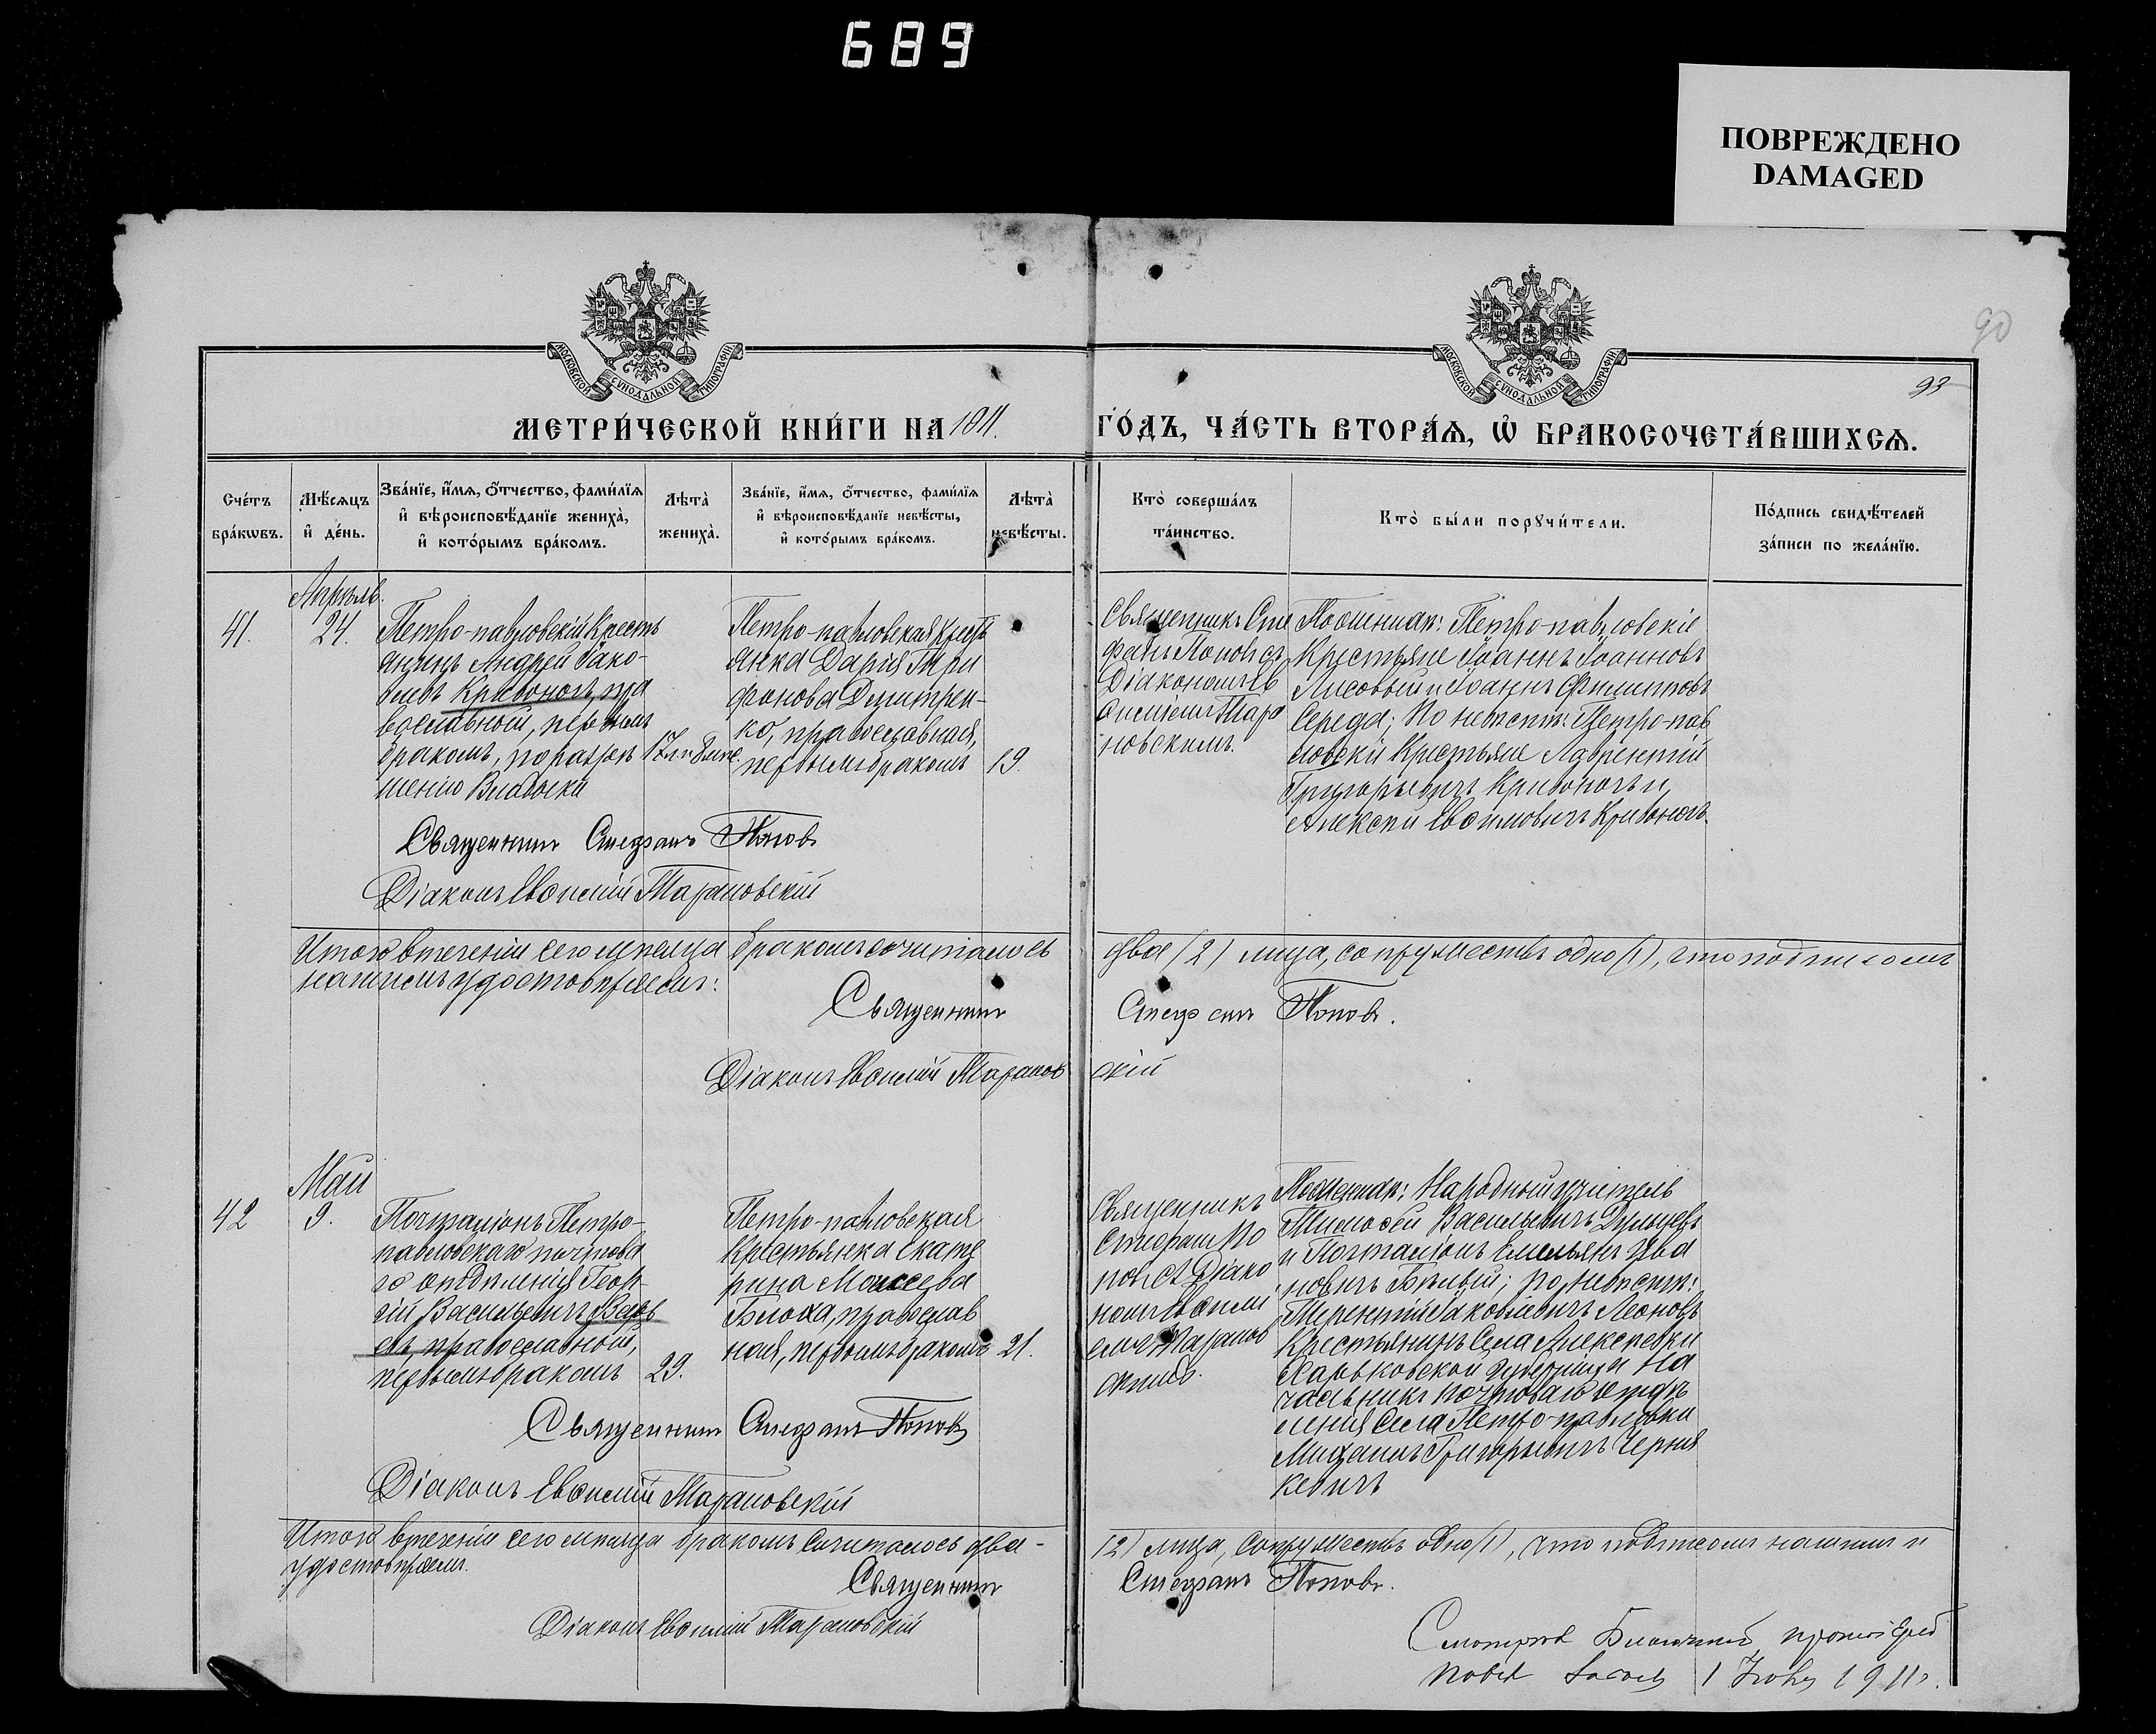 689
ПОВРЕЖДЕНО
DAMAGED
90
93
МОСКОВСКОЙ СѴНОДАЛЬНОЙ ТИПОГРАФІИ
МОСКОВСКОЙ СѴНОДАЛЬНОЙ ТИПОГРАФІИ
МЕТРИ́ЧЕСКОЙ КНИ́ГИ НА 1911.
ГО́ДЪ, ЧА́СТЬ ВТОРА́Ѧ, Ѡ҆ БРАКОСОЧЕТА́ВШИХСѦ.
Сче́тъ бра́кѡвъ.
Мѣ́сѧцъ и҆ де́нь.
Зва́нїе, и҆́мѧ, ѻ҆́тчество, фами́лїѧ и҆ вѣроисповѣ́данїе жениха̀, и҆ кото́рымъ бра́комъ.
Лѣта̀ жениха̀.
Зва́нїе, и҆́мѧ, ѻ҆́тчество, фами́лїѧ и҆ вѣроисповѣ́данїе невѣ́сты, и҆ кото́рымъ бра́комъ.
Лѣта̀ невѣ́сты.
Кто̀ соверша́лъ та́инство.
Кто̀ бы́ли порꙋчи́тели.
По́дпись свидѣ́телей за́писи по жела́нїю.
Апрѣль.
41.
24.
Петро-павловскій кресть
янинъ Андрей Іако-
влевъ Кривоносъ, пра
вославный, первымъ
бракомъ, по разрѣ
шенію Владыки
17 л.
Петро-павловская кресть
янка Дарія Три
фонова Дмитрен-
ко, православная,
первымъ бракомъ
19.
Священникъ Сте
фанъ Поповъ съ
Діакономъ Ев
ѳиміемъ Тара
новскимъ.
По женихѣ: Петро-павловскіе
крестьяне Іоаннъ Іоанновъ
Лисовый и Іоаннъ Филипповъ
Середа; по невѣстѣ: Петро-пав
ловскіе крестьяне Лаврентій
Григорьевичъ Кривоносъ и
Алексѣй Евѳимовичъ Кривоносъ.
Священникъ Стефанъ Поповъ
Діаконъ Евѳимій Тарановскій
Итого въ теченіи сего мѣсяца бракомъ сочиталось
два (2) лица, супружествъ одно (1), что подписомъ
нашимъ удостовѣряемъ:
Священникъ Стефанъ Поповъ.
Діаконъ Евѳимій Тарановскій
Май
42
9.
Почталіонъ Петро-
павловскаго почтова
го отдѣленія Геор-
гій Васильевичъ
православный,
первымъ бракомъ
29.
Петро-павловская
крестьянка Екате
рина Моисеева
Блоха, православ
ная, первымъ бракомъ
21.
Священникъ
Стефанъ По
повъ съ Діако
номъ Евѳимі
емъ Таранов
скимъ.
По женихѣ: Народный учитель
Тимоѳей Васильевичъ
и Почталіонъ Емельянъ Ива
новичъ Бѣлый; по невѣстѣ:
Терентій Іаковлевичъ Леоновъ
крестьянинъ села Алексѣевки
Харьковской губерніи и На
чальникъ почтоваго отдѣ
ленія села Петро-павловки
Михаилъ Григорьевичъ Черня
кевичъ
Священникъ Стефанъ Поповъ
Діаконъ Евѳимій Тарановскій
Итого въ теченіи сего мѣсяца бракомъ сочиталось два-
(2) лица, супружествъ одно (1), что подписомъ нашимъ и
удостовѣряемъ.
Священникъ Стефанъ Поповъ.
Діаконъ Евѳимій Тарановскій
Смотрѣлъ Благочинный протоіерей
1911 г.